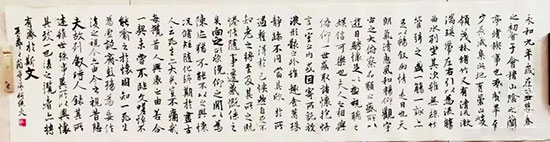 永和九年歲在癸丑暮春
之初會于會稽山陰之蘭
亭修禊事也群賢畢至
少長咸集此地有崇山峻
領茂林脩竹又有清流激
湍暎帶左右引以為流觴
曲水列坐其次雖無絲竹
管絃之盛一觴一詠亦
足以暢敘幽情是日也天
朗氣清惠風和暢仰觀宇
宙之大俯察品類之盛所以
遊目騁懷足以極視聽之
娛信可樂也夫人之相與
俯仰一世或取諸懷抱悟
言一室之內或因寄所託放
浪形骸之外雖趣舍萬殊
靜躁不同當其欣於所
遇暫得於己快然自足不
知老之將至及其所之既
惓情隨事遷感慨係之
矣向之所欣俛仰之間以為
陳迹猶不能不以之興懷
況脩短隨化終期於盡古
人云死生亦大矣豈不痛哉
每攬昔人興感之由若合
一契未嘗不臨文嗟悼不
能喻之於懷固知一死生
為虛誕齊彭殤為妄作
後之視今亦由今之視昔悲
夫故列敘時人錄其所
述雖世殊事異所以興懷
其致一也後之攬者亦將
有感於斯文